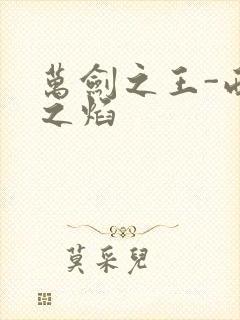 萬劍之王-
之焰
莫采兒